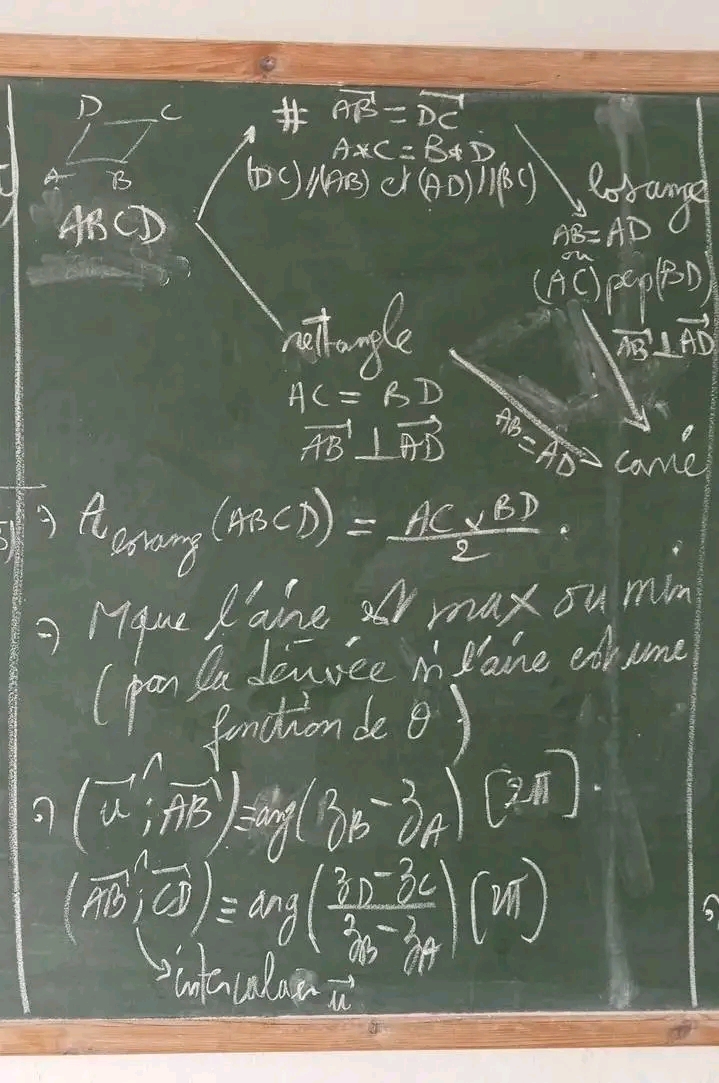 D C
A B
ABCD
# \overrightarrow{AB} = \overrightarrow{DC}
A*C = B*D
(DC)//(AB) et (AD)//(BC)
losange
AB = AD
ou
(AC) perp (BD)
\overrightarrow{AB} ⊥ \overrightarrow{AD}
rectangle
AC = BD
\overrightarrow{AB} ⊥ \overrightarrow{AD}
AB = AD
carré
A losang (ABCD) = \frac{AC × BD}{2}.
Mque l'aire est max ou min
(par la dérivée si l'aire est une
fonction de θ)
(\overrightarrow{u} ; \overrightarrow{AB}) ≡ arg(z_B - z_A) [2π].
(\overrightarrow{AB} ; \overrightarrow{CD}) ≡ arg(\frac{z_D - z_C}{z_B - z_A}) [2π]
intercaler \overrightarrow{u}